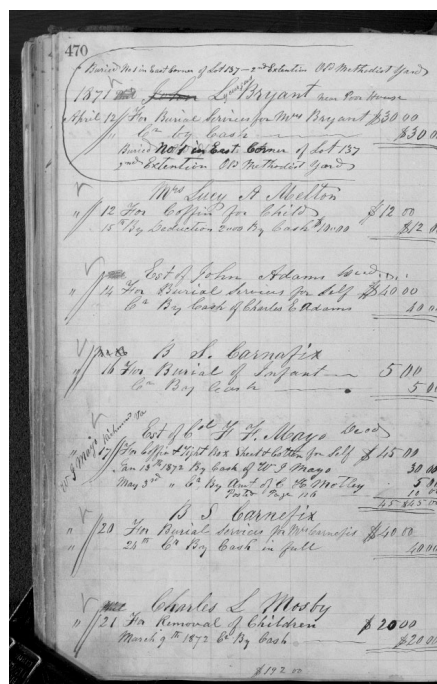 470
Buried No 1 in East Corner of Lot 137 - 2nd Extention Old Methodist Yard
1871 John L Bryant near Poor House
April 12 For Burial Services for Mrs Bryant $30 00
" Cr by Cash $30 00
Buried No 1 in East Corner of Lot 137
2nd Extention Old Methodist Yard
Mrs Lucy A Melton
" 12 For Coffin for Child $12 00
15th By Deduction 2 00 By Cash $10.00 $12 0
Est of John Adams Decd
" 14 For Burial Services for Self $40 00
Cr By Cash of Charles E Adams 40 00
B S. Carnefix
" 16 For Burial of Infant 5 00
Cr By Cash 5 0
W J Mayo Richmond Va
Est of Col F F. Mayo Decd
" 17 For Coffin & Tight Box Sheet & Cotton for Self $45 00
Jan 15th 1872 By Cash of W J Mayo 30 00
May 3rd " Cr By Amt of C H Motley 5 0
Posted Page 116 10 00
45 $45 00
B S Carnefix
" 20 For Burial Services for Mrs Carnefix $40.00
" 24th Cr By Cash in full 40 00
Charles L Mosby
" 21 For Removal of Children $20 00
March 9th 1872 Cr By Cash $20 00
$192 00